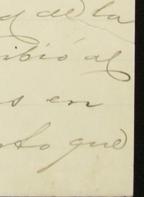 y de la
ibió al
s en
nto que